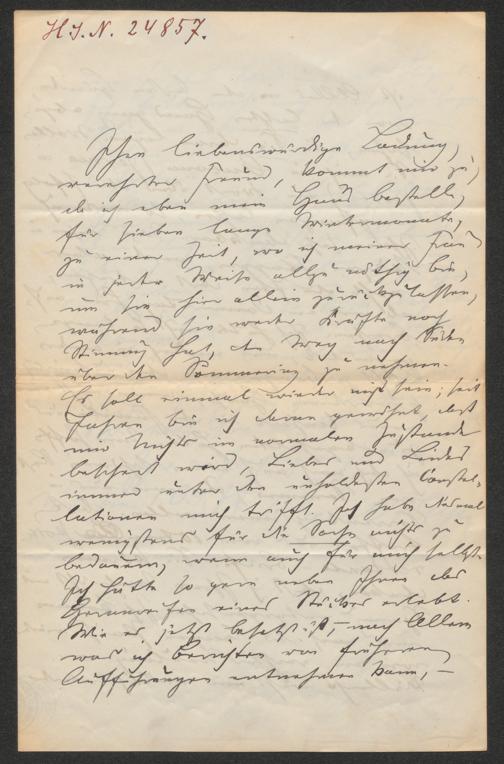 H.I.N. 24857.
Ihre liebenswürdige Ladung,
verehrter Freund, kommt mir zu,
da ich eben mein Haus bestelle,
für sieben lange Wintermonate,
zu einer Zeit, wo ich meiner Frau
in jeder Weise allzu nöthig bin,
um sie hier allein zurückzulassen,
während sie weder Kräfte noch
Stimmung hat, den Weg nach Süden
über den Semmering zu nehmen.
Es soll einmal wieder nicht sein; seit
Jahren bin ich daran gewöhnt, daß
mir Nichts im normalen Zustande
bescheert wird, Liebes und Leides
immer unter den unholdesten Constel-
lationen mich trifft. Ich habe diesmal
wenigstens für die Sache nichts zu
bedauern, wenn auch für mich selbst.
Ich hätte so gern neben Ihnen das
Heranreifen eines Stückes erlebt.
Wie es jetzt besetzt ist, – nach Allem
was ich Berichten von früheren
Aufführungen entnehmen kann, –